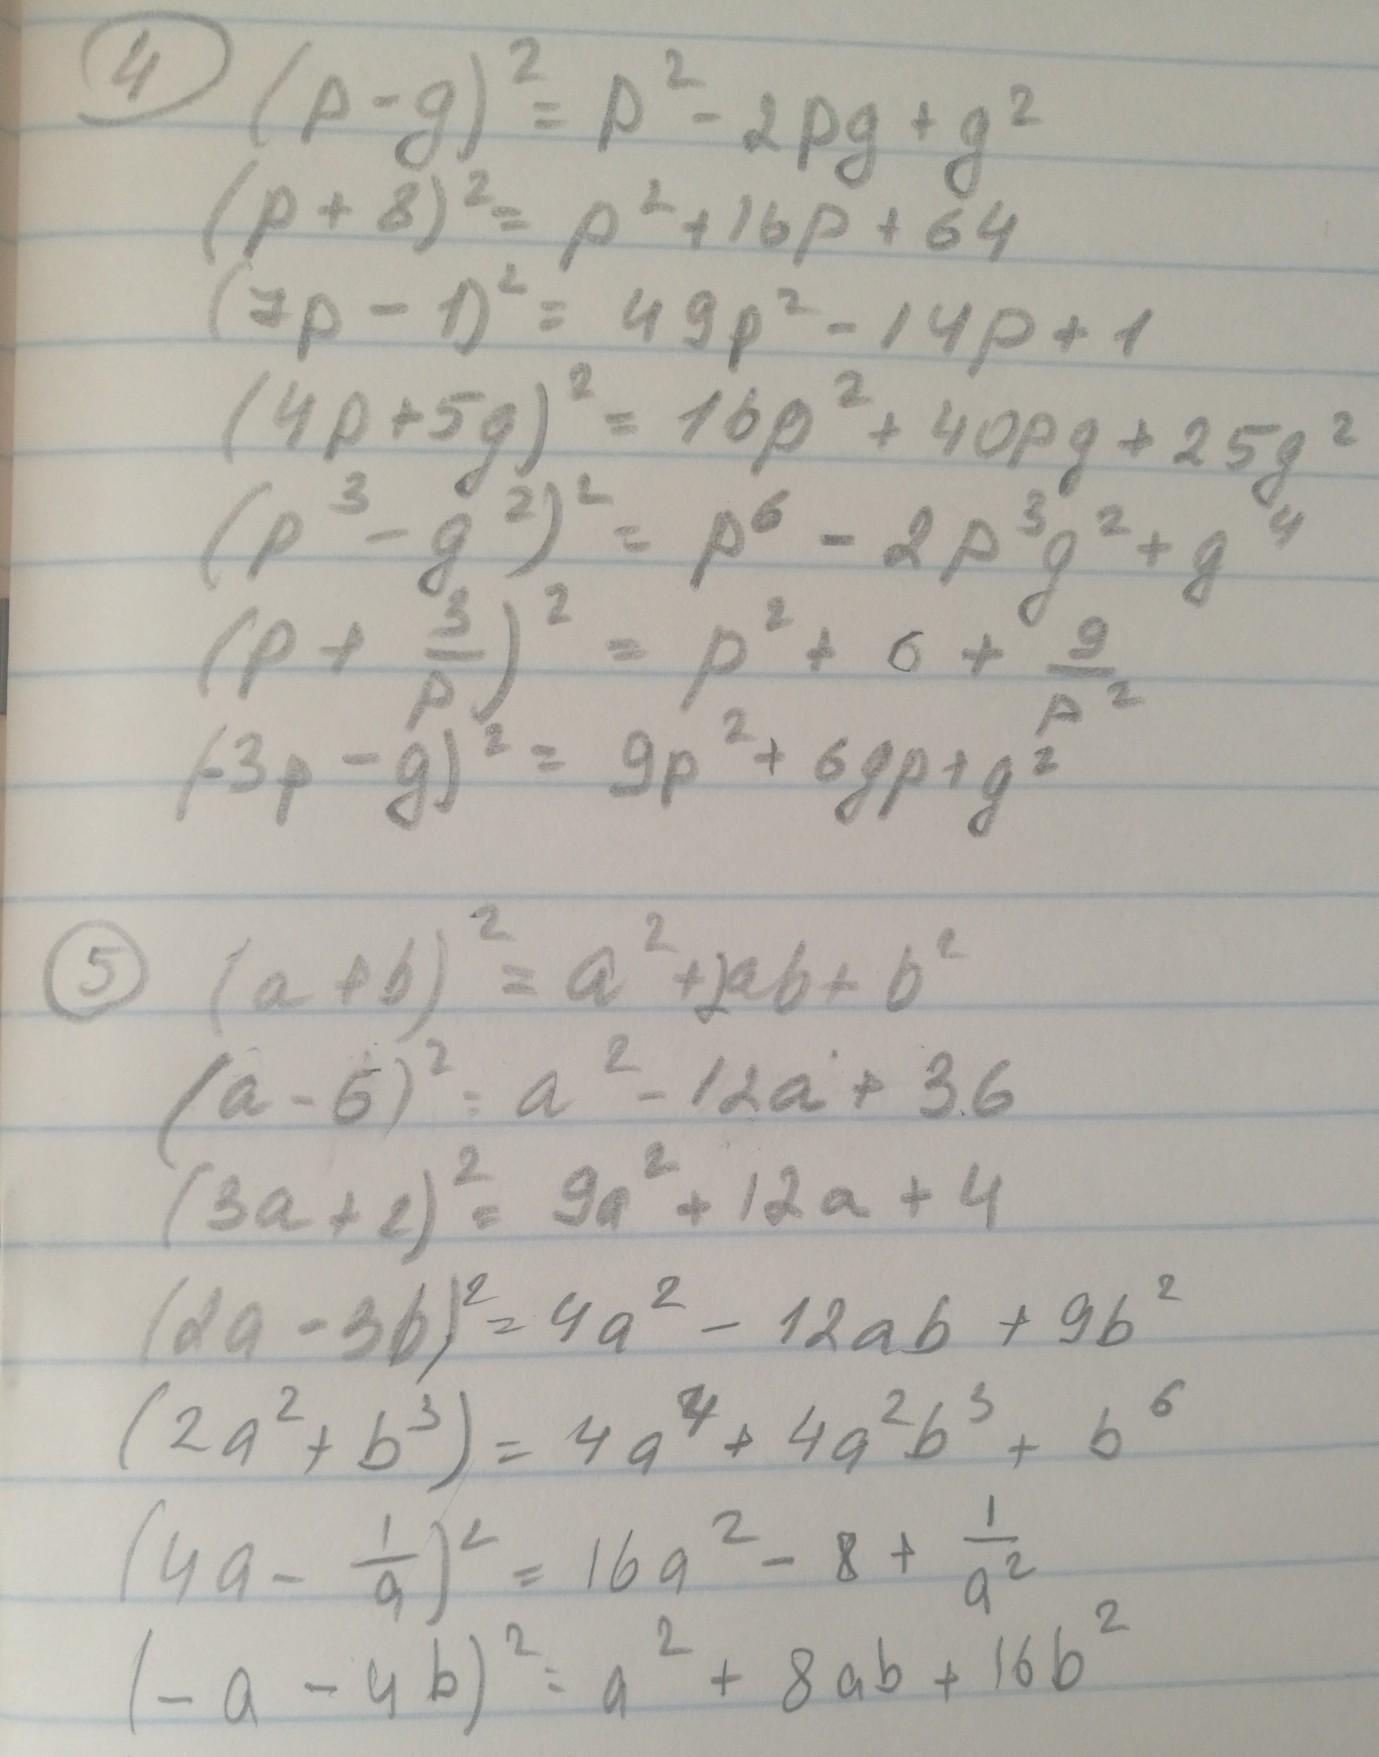 ④ (p - g)² = p² - 2pg + g²
(p + 8)² = p² + 16p + 64
(7p - 1)² = 49p² - 14p + 1
(4p + 5g)² = 16p² + 40pg + 25g²
(p³ - g²)² = p⁶ - 2p³g² + g⁴
(p + 3/p)² = p² + 6 + 9/p²
(-3p - g)² = 9p² + 6gp + g²
⑤ (a + b)² = a² + 2ab + b²
(a - 6)² = a² - 12a + 36
(3a + 2)² = 9a² + 12a + 4
(2a - 3b)² = 4a² - 12ab + 9b²
(2a² + b³) = 4a⁴ + 4a²b³ + b⁶
(4a - 1/a)² = 16a² - 8 + 1/a²
(-a - 4b)² = a² + 8ab + 16b²